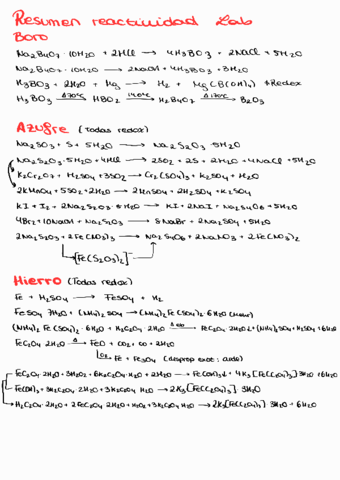 Resumen reactividad Lab
Boro
Na2B4O7 · 10H2O + 2HCl → 4H3BO3 + 2NaCl + 5H2O
Na2B4O7 · 10H2O → 2NaOH + 4H3BO3 + 3H2O
H3BO3 + 2H2O + Mg → H2 + Mg(B(OH)4) *Redox
H3BO3 Δ70°C→ HBO2 140°C→ H2B4O7 Δ170°C→ B2O3
Azufre (todas redox)
Na2SO3 + S + 5H2O → Na2S2O3 · 5H2O
Na2S2O3 · 5H2O + 4HCl → 2SO2 + 2S + 2H2O + 4NaCl + 5H2O
K2Cr2O7 + H2SO4 + 3SO2 → Cr2(SO4)3 + K2SO4 + H2O
2KMnO4 + 5SO2 + 2H2O → 2MnSO4 + 2H2SO4 + K2SO4
KI + I2 + 2Na2S2O3 · 5H2O → KI + 2NaI + Na2S4O6 + 5H2O
4Br2 + 10NaOH + Na2S2O3 → 8NaBr + 2Na2SO4 + 5H2O
2Na2S2O3 + 2Fe(NO3)3 → Na2S4O6 + 2NaNO3 + 2Fe(NO3)2
[Fe(S2O3)2]-
Hierro (Todas redox)
Fe + H2SO4 → FeSO4 + H2
FeSO4 7H2O + (NH4)2SO4 → (NH4)2Fe(SO4)2 · 6H2O
(NH4)2 Fe(SO4)2 · 6H2O + H2C2O4 · 2H2O → FeC2O4 · 2H2O↓ + (NH4)2SO4 + H2SO4 + 6H2O
FeC2O4 2H2O Δ→ FeO + CO2 + CO + 2H2O
O2 Fe + Fe3O4
FeC2O4 · 2H2O + 3H2O2 + 6K2C2O4 · H2O + 2H2O → Fe(OH)3↓ + 4K3[Fe(C2O4)3] 3H2O + 6H2O
Fe(OH)3 + 3H2C2O4 · 2H2O + 3K2C2O4 H2O → 2K3[Fe(C2O4)3] 3H2O
H2C2O4 · 2H2O + 2FeC2O4 2H2O + H2O2 + 3K2C2O4 H2O → 2K3[Fe(C2O4)3] 3H2O + 6H2O